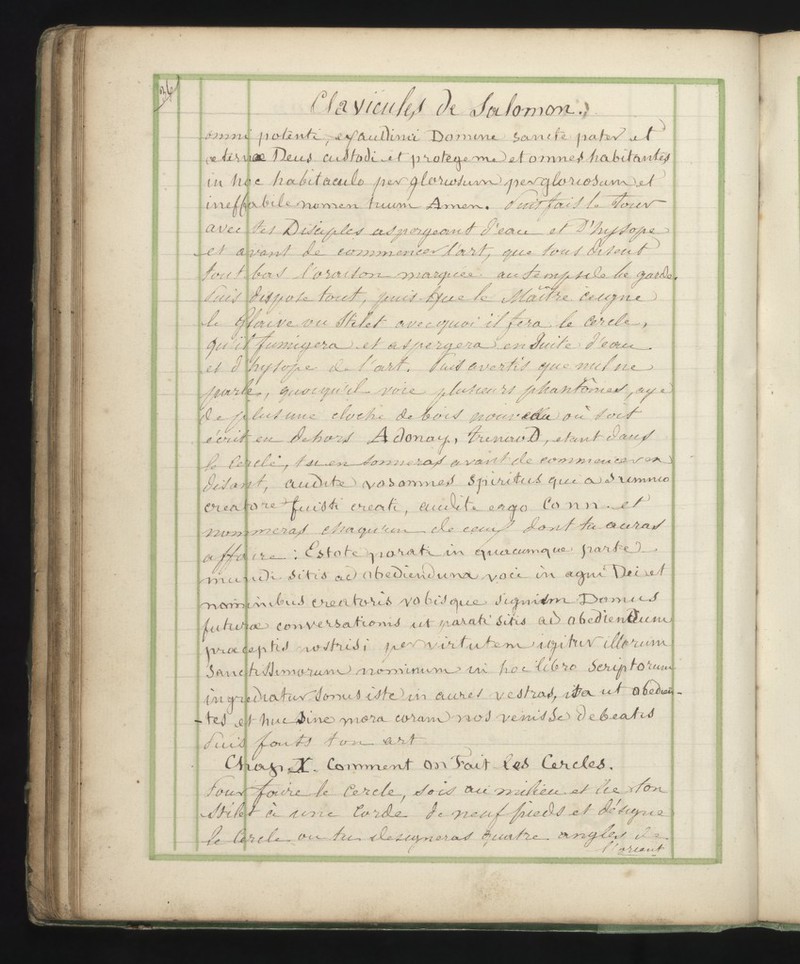 36
Clavicules de Salomon.
omni potenti, exaudinei Domine sancte pater et
æternæ Deus custodi et protege me et omnes habitantes
in hoc habitaculo per gloriosum per gloriosum et
ineffabile nomen tuum Amen. Puis fais le tour
avec tes Disciples aspergeant d'eau et d'hysope
et avant de commencer l'art, que tous disent
tout bas l'oraison marquée au temps de le garde.
Puis dispose tout, puis que le Maître ceigne
le Glaive ou Stilet avec quoi il fera le cercle,
qu'il fumigera et aspergera ensuite d'eau
et d'hysope de l'art. Puis avertis que nul ne
parle, quoiqu'il voie plusieurs phantômes, aye
de plus une cloche de bois nouveau où soit
écrit en dehors Adonay, trinauD, etant dans
le Cercle, tu en sonneras avant de commencer en
disant, audite vos omnes Spiritus qui a summo
creatore fuisti creati, audite ergo Conn et
nommeras chaqu'un de ceux dont tu auras
affaire : Estote parati in quacumque parte
mundi sitis ad obediendum voci in agni Dei et
nominibus creatoris vobisque signum Domus
futuræ conversationis ut parati sitis ad obediendum
præceptis nostrisi per virtutem igitur illorum
Sanctissimorum nominum in hoc libro Scriptorum
ingrediatur sonus iste in aures vestras, ita ut obedien-
-tes et huc sine mora coram nos venisse debeatis
Puis faits ton art
Chap. X. Comment on Fait Les Cercles.
Pour faire le Cercle, sois au milieu et lie ton
Stilet à une Corde de neuf pieds et désigne
le Cercle ou tu designeras quatre angles de
l'orient